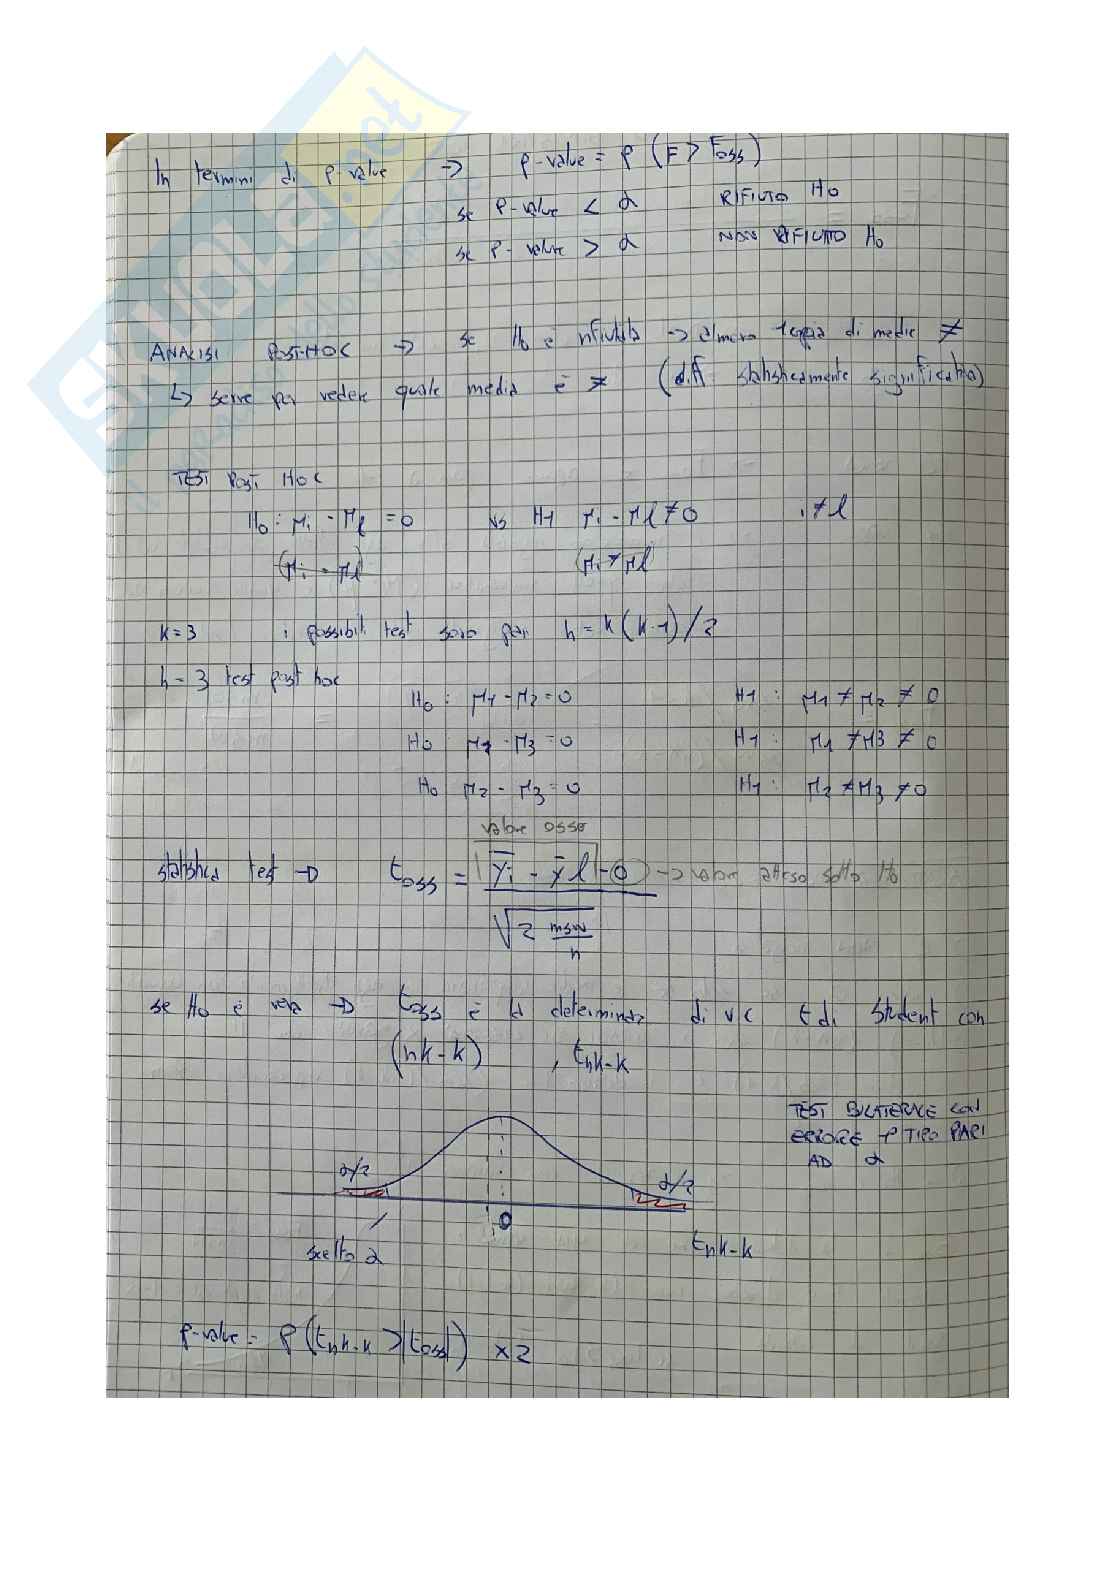 In termini di p-value → p-value = P (F > Foss)
se p-value < α RIFIUTO H0
se p-value > α NON RIFIUTO H0
ANALISI POST-HOC → se H0 è rifiutata → almeno 1 coppia di medie ≠
↳ serve per vedere quale media è ≠ (diff statisticamente significativa)
TEST POST HOC
H0 : μi - μl = 0 vs H1 μi - μl ≠ 0 i ≠ l
(μi = μl) (μi ≠ μl
k = 3 i possibili test sono pari h = k(k-1)/2
h = 3 test post hoc
H0 : μ1 - μ2 = 0 H1 : μ1 ≠ μ2 ≠ 0
H0 μ1 - μ3 = 0 H1 : μ1 ≠ μ3 ≠ 0
H0 μ2 - μ3 = 0 H1 : μ2 ≠ μ3 ≠ 0
valore osse
statistica test → toss = (ȳi - ȳl - 0) / √(2 msw/n) → valore atteso sotto H0
se H0 è vera → toss è la determinaz di v.c t di Student con
(nk-k) , tnk-k
TEST BILATERALE CON
ERRORE 1° TIPO PARI
AD α
α/2 α/2
0
scelto α tnk-k
p-value = P(tnk-k > |toss|) × 2
SKUOLA.net